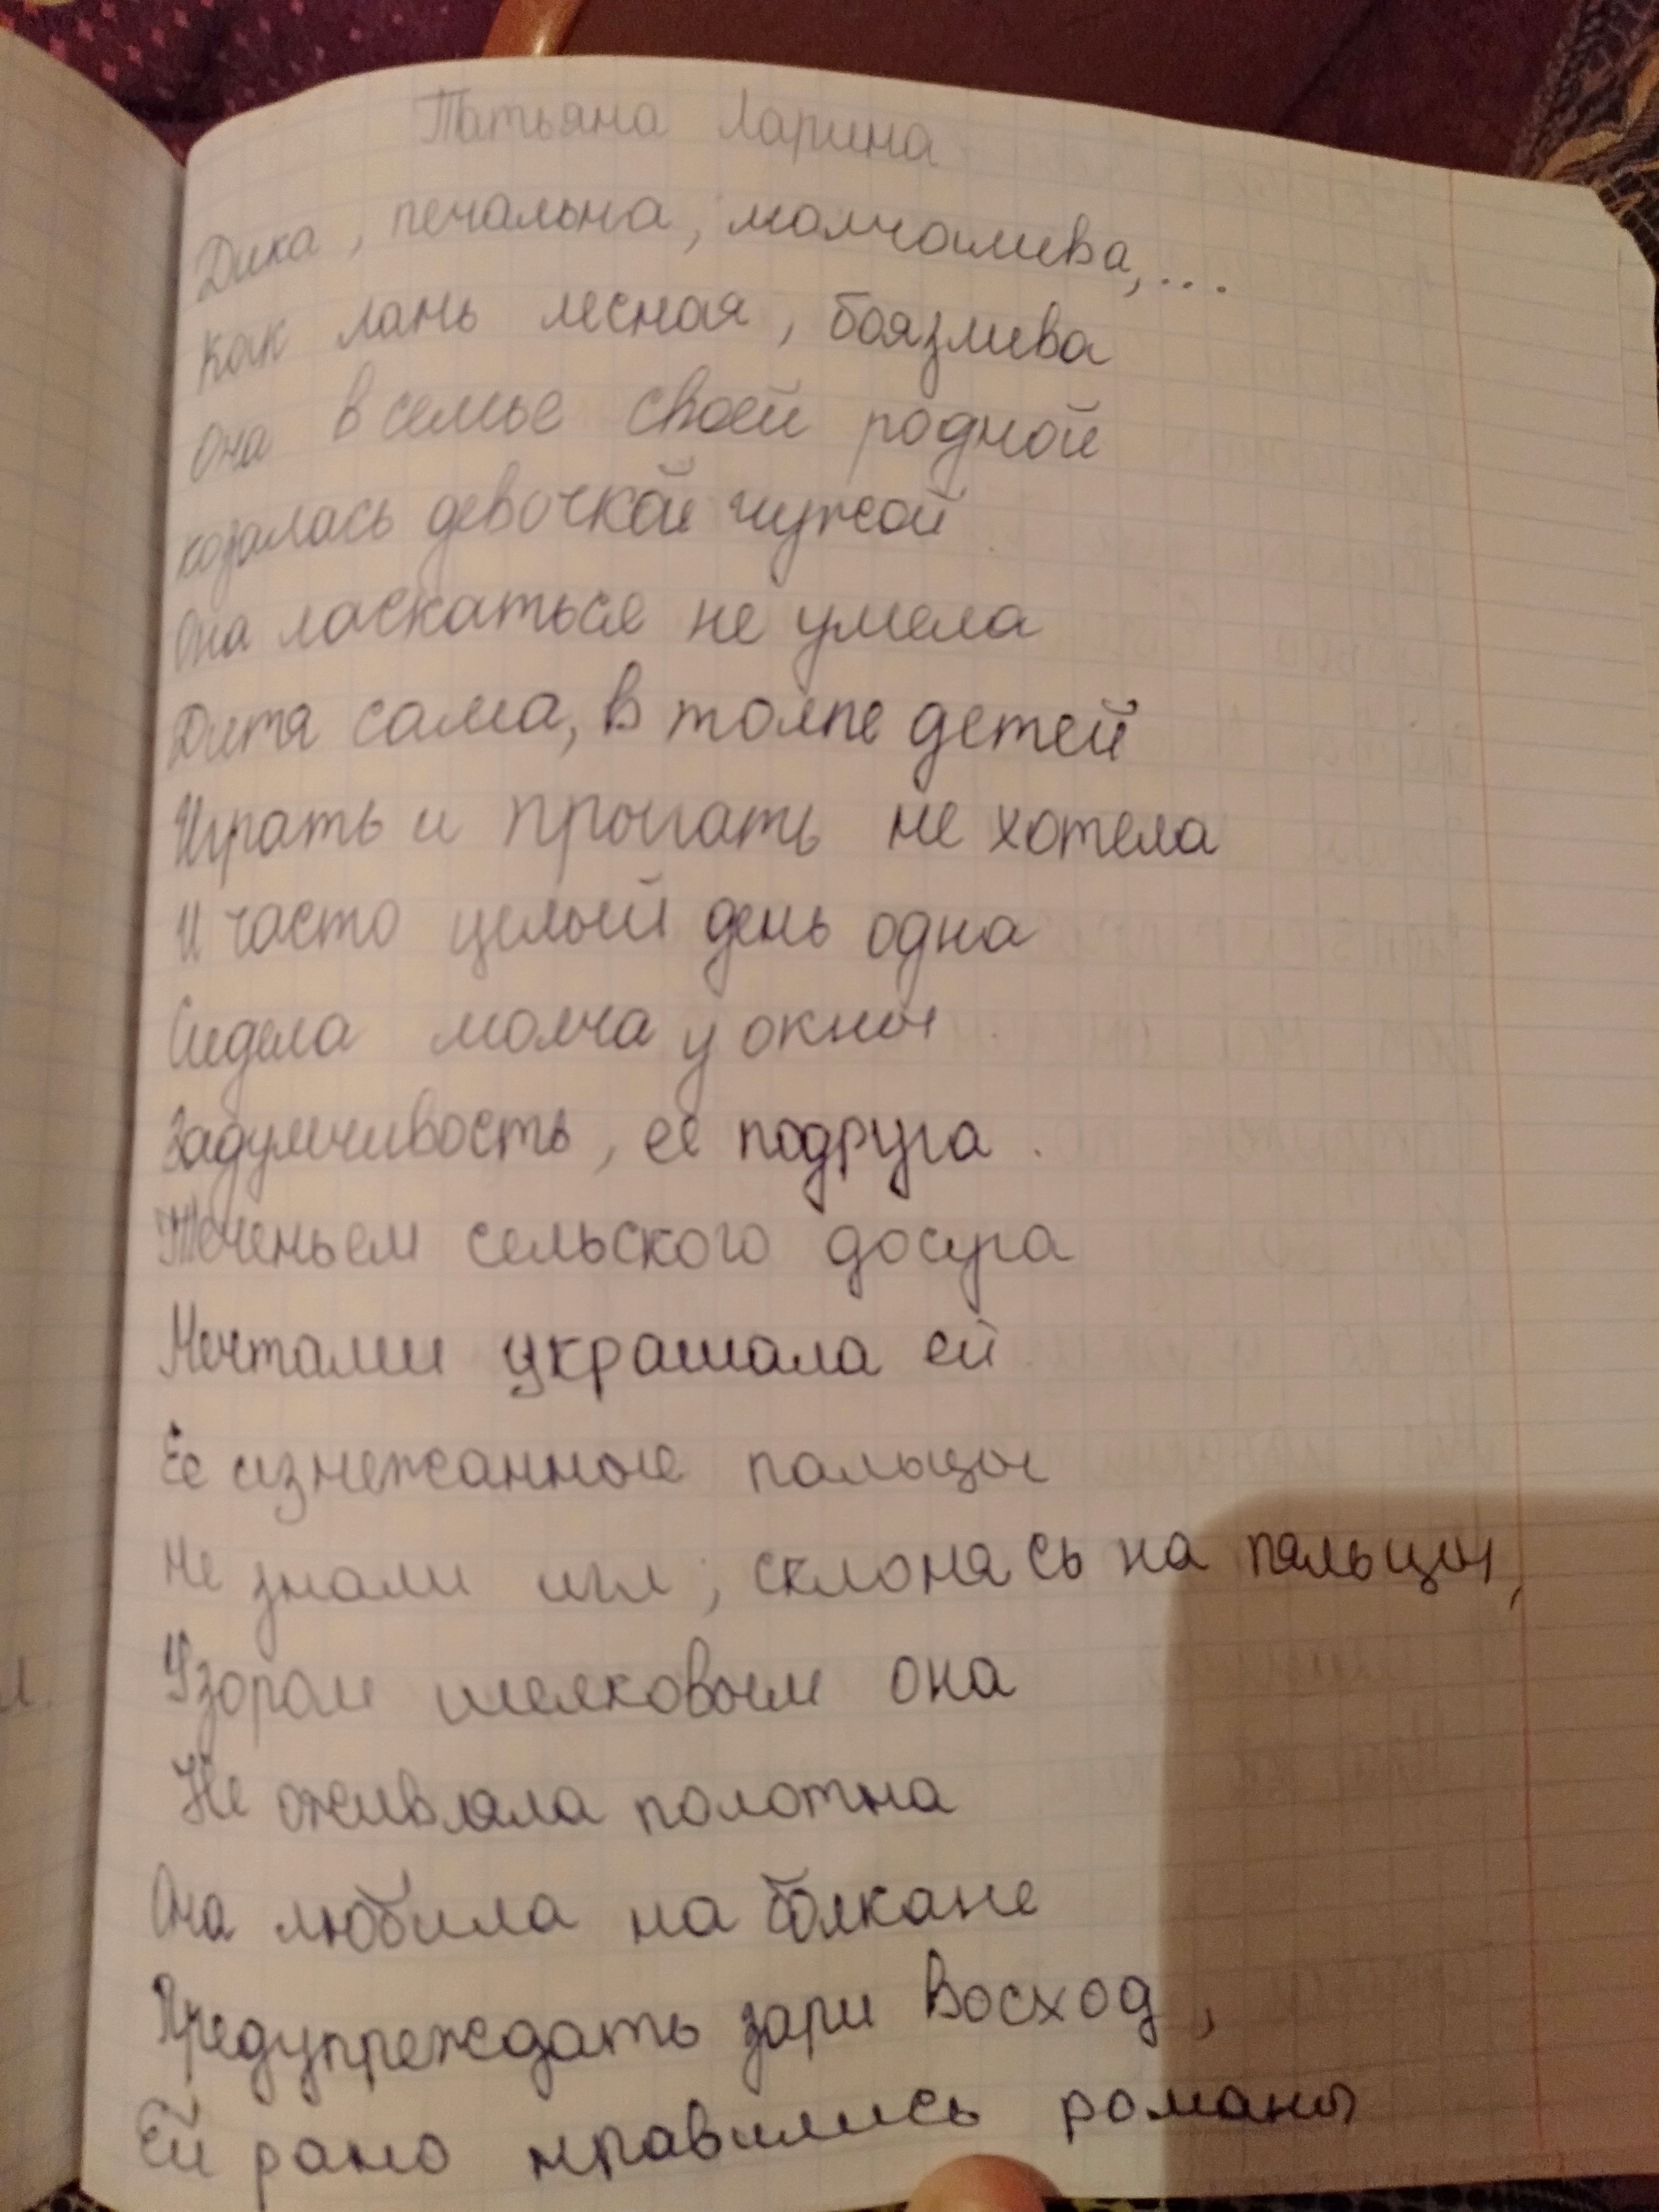 Татьяна Ларина
Дика, печальна, молчалива,...
Как лань лесная, боязлива
Она в семье своей родной
казалась девочкой чужой
Она ласкаться не умела
Дитя сама, в толпе детей
Играть и прыгать не хотела
И часто целый день одна
Сидела молча у окны
Задумчивость, её подруга.
Теченьем сельского досуга
Мечтами украшала ей
Её изнежанные пальцы
Не знали игл; склонясь на пяльцы,
Узором шелковым она
Не оживляла полотна
Она любила на болкане
Предупреждать зари восход,
Ей рано нравились романы